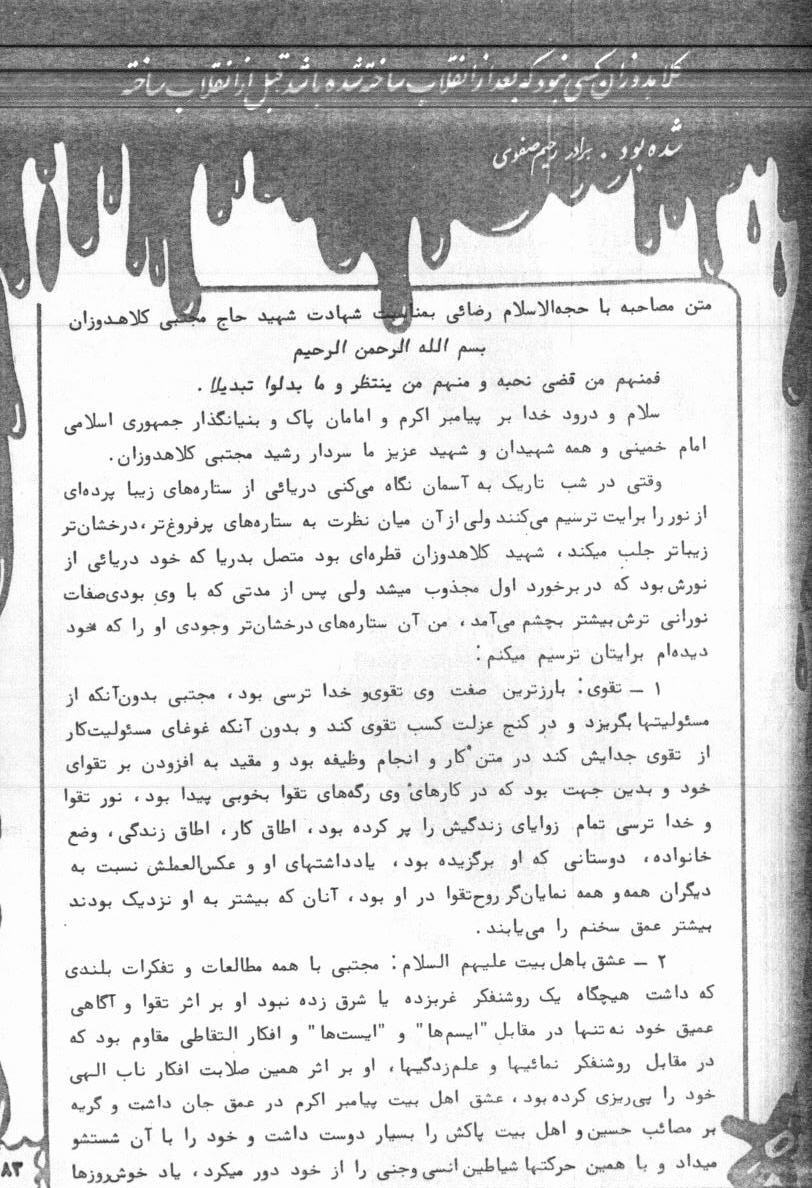 کلاهدوزان کسی نبود که بعد از انقلاب ساخته شده باشد قبل از انقلاب ساخته
شده بود . برادر رحیم صفوی
متن مصاحبه با حجه‌الاسلام رضائی بمناسبت شهادت شهید حاج مجتبی کلاهدوزان
بسم الله الرحمن الرحیم
فمنهم من قضی نحبه و منهم من ینتظر و ما بدلوا تبدیلا .
سلام و درود خدا بر پیامبر اکرم و امامان پاک و بنیانگذار جمهوری اسلامی
امام خمینی و همه شهیدان و شهید عزیز ما سردار رشید مجتبی کلاهدوزان .
وقتی در شب تاریک به آسمان نگاه می‌کنی دریائی از ستاره‌های زیبا پرده‌ای
از نور را برایت ترسیم می‌کنند ولی از آن میان نظرت به ستاره‌های پرفروغ‌تر ، درخشان‌تر
زیباتر جلب میکند ، شهید کلاهدوزان قطره‌ای بود متصل بدریا که خود دریائی از
نورش بود که در برخورد اول مجذوب میشد ولی پس از مدتی که با وی بودی صفات
نورانی ترش بیشتر بچشم می‌آمد ، من آن ستاره‌های درخشان‌تر وجودی او را که خود
دیده‌ام برایتان ترسیم میکنم :
۱ – تقوی : بارزترین صفت وی تقوی و خدا ترسی بود ، مجتبی بدون آنکه از
مسئولیتها بگریزد و در کنج عزلت کسب تقوی کند و بدون آنکه غوغای مسئولیت کار
از تقوی جدایش کند در متن کار و انجام وظیفه بود و مقید به افزودن بر تقوای
خود و بدین جهت بود که در کارهای وی رگه‌های تقوا بخوبی پیدا بود ، نور تقوا
و خدا ترسی تمام زوایای زندگیش را پر کرده بود ، اطاق کار ، اطاق زندگی ، وضع
خانواده ، دوستانی که او برگزیده بود ، یادداشتهای او و عکس‌العملش نسبت به
دیگران همه و همه نمایان‌گر روح تقوا در او بود ، آنان که بیشتر به او نزدیک بودند
بیشتر عمق سخنم را می‌یابند .
۲ – عشق باهل بیت علیهم السلام : مجتبی با همه مطالعات و تفکرات بلندی
که داشت هیچگاه یک روشنفکر غربزده یا شرق زده نبود او بر اثر تقوا و آگاهی
عمیق خود نه تنها در مقابل "ایسم‌ها" و "ایست‌ها" و افکار التقاطی مقاوم بود که
در مقابل روشنفکر نمائیها و علم‌زدگیها ، او بر اثر همین صلابت افکار ناب الهی
خود را پی‌ریزی کرده بود ، عشق اهل بیت پیامبر اکرم در عمق جان داشت و گریه
بر مصائب حسین و اهل بیت پاکش را بسیار دوست داشت و خود را با آن شستشو
میداد و با همین حرکتها شیاطین انسی و جنی را از خود دور میکرد ، یاد خوش روزها
۸۳